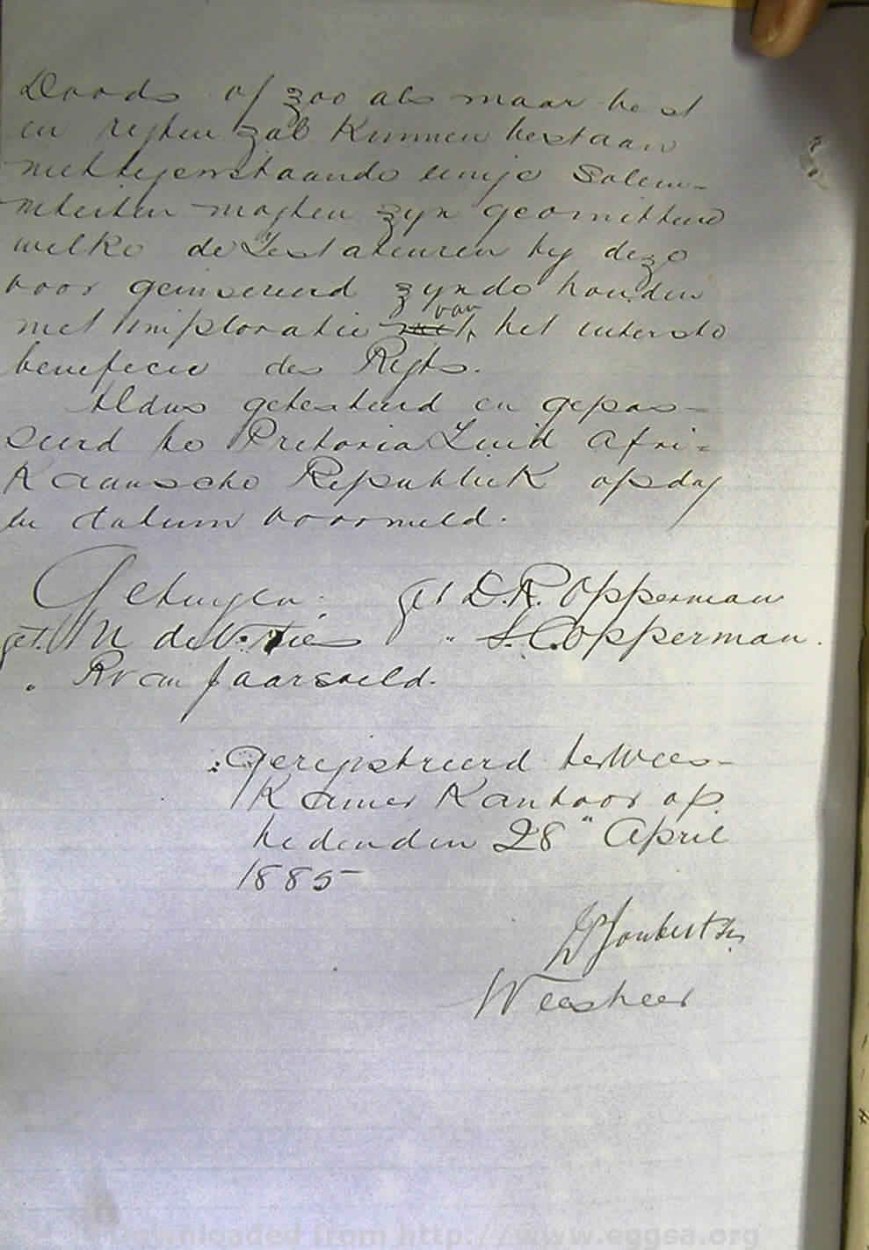 Doods of zoo als maar best
en regten zal Kunnen bestaan
niettegenstaande eenige Solem-
niteiten mogten zyn geomitteerd
welke de Testateuren by deze
voor geinsereerd zynde houden
met imploratie van het uiterste
beneficie des Regts.
Aldus getesteerd en gepas-
seerd te Pretoria Zuid Afri-
Kaansche Republiek op dag
en datum voormeld.
Getuigen. get D.R. Opperman
get. N de V. " S.C. Opperman.
" R van Jaarsveld.
Geregistreerd ter Wees-
Kamer Kantoor op
heden den 28" April
1885
Joubert
Weesheer
Downloaded from http://www.eggsa.org